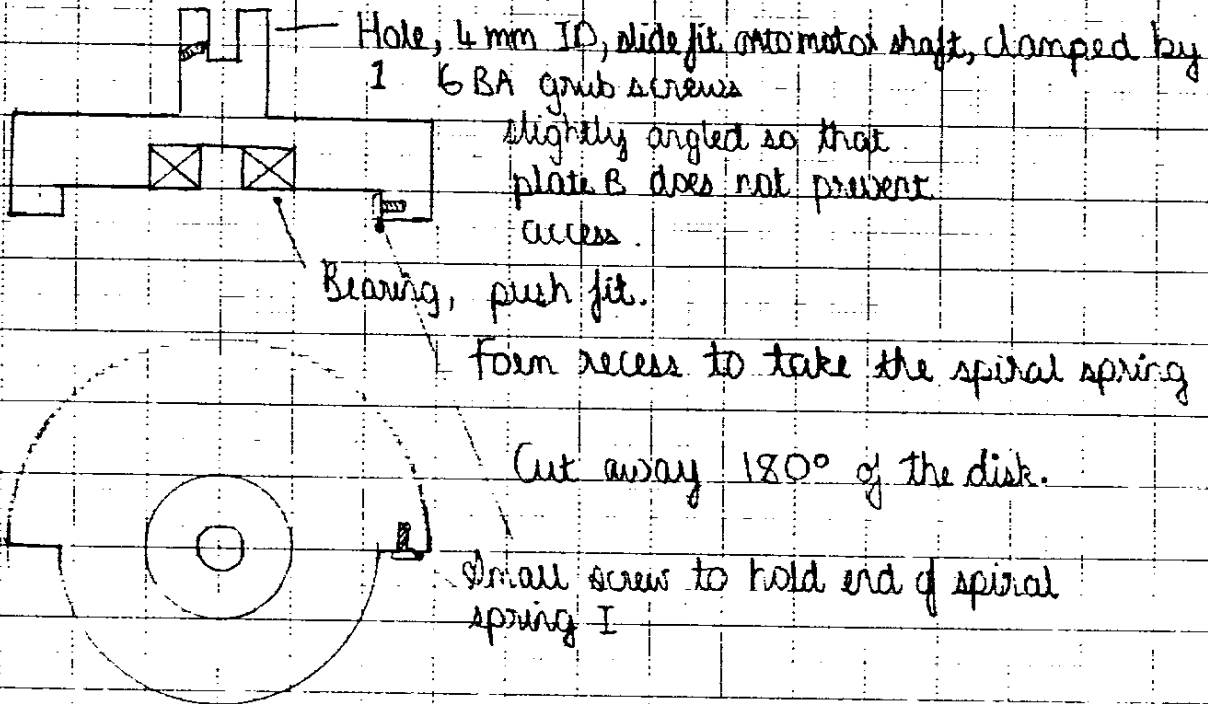 Hole, 4 mm ID, slide fit onto motor shaft, clamped by
1 6 BA grub screws
slightly angled so that
plate B does not prevent
access.
Bearing, push fit.
Form recess to take the spiral spring
Cut away 180° of the disk.
Small screw to hold end of spiral
spring I